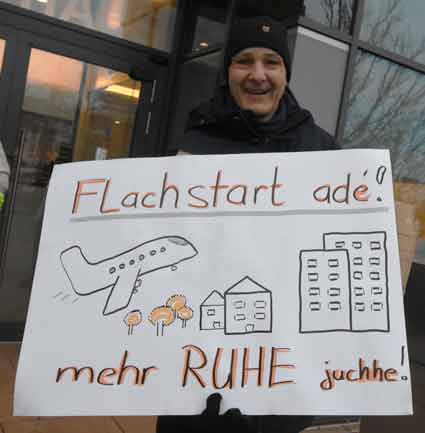 FLachstart adé!
mehr RUHE juchhe!